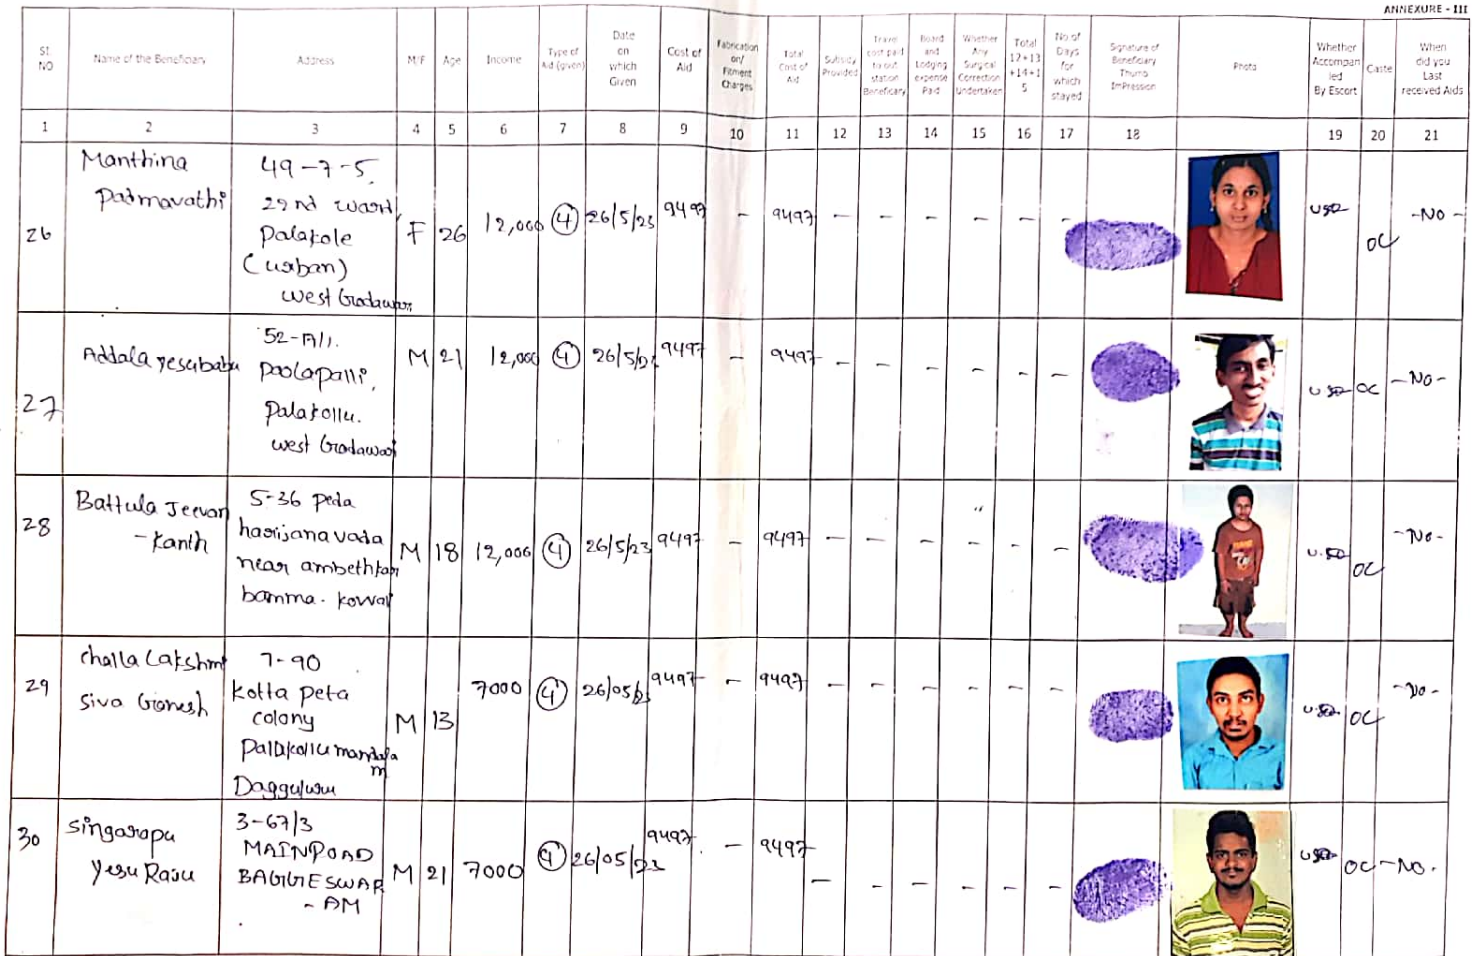 ANNEXURE - III
Sl. NO
Name of the Beneficiary
Address
M/F
Age
Income
Type of Aid (given)
Date on which Given
Cost of Aid
Fabrication on/ Fitment Charges
Total Cost of Aid
Subsidy Provided
Travel cost paid to out station Beneficiary
Board and Lodging expense Paid
Whether Any Surgical Correction Undertaken
Total 12+13+14+15
No of Days for which stayed
Signature of Beneficiary Thumb ImPression
Photo
Whether Accompanied By Escort
Caste
When did you Last received Aids
1 2 3 4 5 6 7 8 9 10 11 12 13 14 15 16 17 18 19 20 21
26
Manthina
Padmavathi
49-7-5,
29nd ward,
Palakole
(urban)
West Godavari
F 26 12,000 4 26/5/23 9497 - 9497 - - - - - -
OC
-No-
27
Addala yesubabu
52-A/1.
poolapalli,
Palakollu.
west Godawari
M 21 12,000 4 26/5/23 9497 - 9497 - - - - - -
OC
-No-
28
Battula Jeevan
-kanth
5-36 peda
harijanavada
near ambethkar
bamma. kovvali
M 18 12,000 4 26/5/23 9497 - 9497 - - - - - -
OC
-No-
29
challa Lakshmi
Siva Ganesh
7-90
Kotta peta
colony
Palakollu mandala
m
Dagguluru
M 13 7000 4 26/05/23 9497 - 9497 - - - - - -
OC
-No-
30
Singarapu
Yesu Raju
3-67/3
MAINROAD
BAGGESWAR
-AM
M 21 7000 4 26/05/23 9497 - 9497 - - - - - -
OC
-No.